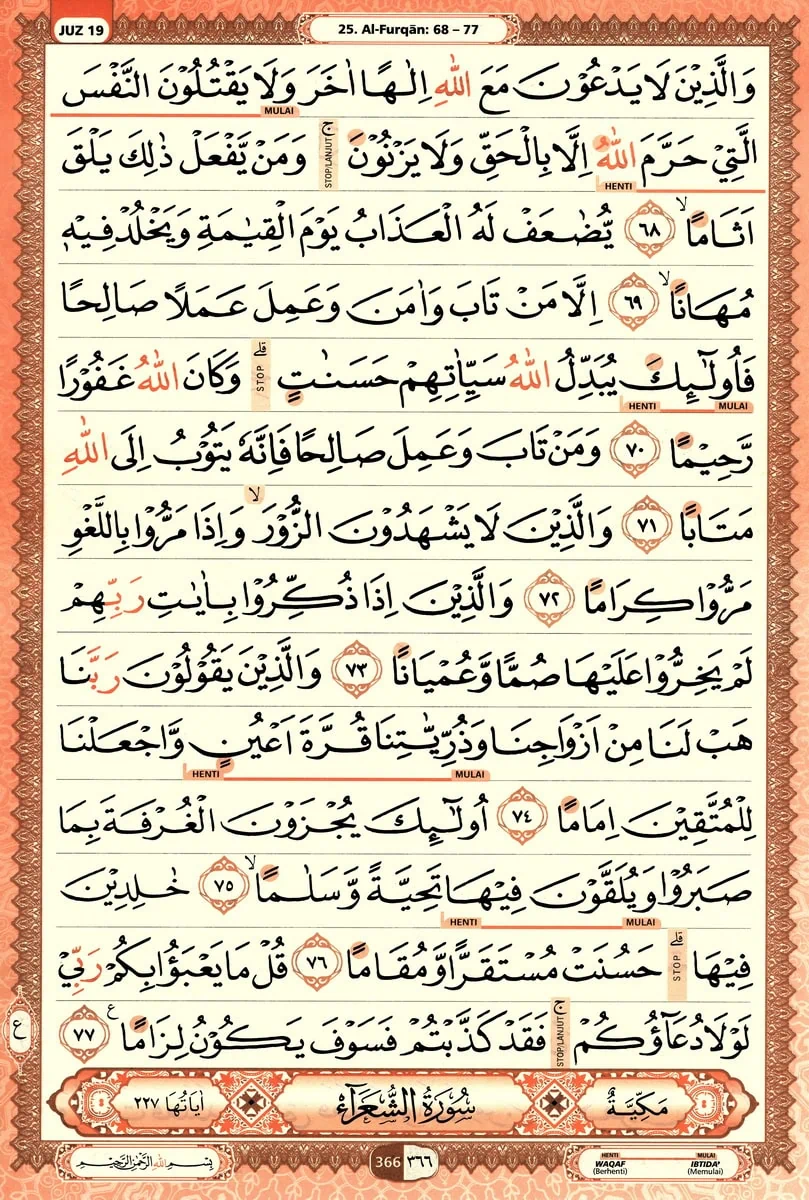 JUZ 19
25. Al-Furqān: 68 – 77
وَالَّذِيْنَ لَا يَدْعُوْنَ مَعَ اللّٰهِ اِلٰهًا اٰخَرَ وَلَا يَقْتُلُوْنَ النَّفْسَ
MULAI
الَّتِيْ حَرَّمَ اللّٰهُ اِلَّا بِالْحَقِّ وَلَا يَزْنُوْنَ ۚ وَمَنْ يَّفْعَلْ ذٰلِكَ يَلْقَ
HENTI STOP/LANJUT
اَثَامًا ۙ ٦٨ يُّضٰعَفْ لَهُ الْعَذَابُ يَوْمَ الْقِيٰمَةِ وَيَخْلُدْ فِيْهٖ
مُهَانًا ۙ ٦٩ اِلَّا مَنْ تَابَ وَاٰمَنَ وَعَمِلَ عَمَلًا صَالِحًا
فَاُولٰۤىِٕكَ يُبَدِّلُ اللّٰهُ سَيِّاٰتِهِمْ حَسَنٰتٍ ۗ وَكَانَ اللّٰهُ غَفُوْرًا
HENTI MULAI STOP
رَّحِيْمًا ٧٠ وَمَنْ تَابَ وَعَمِلَ صَالِحًا فَاِنَّهٗ يَتُوْبُ اِلَى اللّٰهِ
مَتَابًا ٧١ وَالَّذِيْنَ لَا يَشْهَدُوْنَ الزُّوْرَ ۙ وَاِذَا مَرُّوْا بِاللَّغْوِ
مَرُّوْا كِرَامًا ٧٢ وَالَّذِيْنَ اِذَا ذُكِّرُوْا بِاٰيٰتِ رَبِّهِمْ
لَمْ يَخِرُّوْا عَلَيْهَا صُمًّا وَّعُمْيَانًا ٧٣ وَالَّذِيْنَ يَقُوْلُوْنَ رَبَّنَا
هَبْ لَنَا مِنْ اَزْوَاجِنَا وَذُرِّيّٰتِنَا قُرَّةَ اَعْيُنٍ وَّاجْعَلْنَا
HENTI MULAI
لِلْمُتَّقِيْنَ اِمَامًا ٧٤ اُولٰۤىِٕكَ يُجْزَوْنَ الْغُرْفَةَ بِمَا
صَبَرُوْا وَيُلَقَّوْنَ فِيْهَا تَحِيَّةً وَّسَلٰمًا ۙ ٧٥ خٰلِدِيْنَ
HENTI MULAI
فِيْهَا ۗ حَسُنَتْ مُسْتَقَرًّا وَّمُقَامًا ٧٦ قُلْ مَا يَعْبَؤُا بِكُمْ رَبِّيْ
STOP
لَوْلَا دُعَاۤؤُكُمْ ۚ فَقَدْ كَذَّبْتُمْ فَسَوْفَ يَكُوْنُ لِزَامًا ࣖ ٧٧
STOP/LANJUT
ع
مَكِّيَّةٌ سُوْرَةُ الشُّعَرَاۤءِ اٰيَاتُهَا ٢٢٧
بِسْمِ اللّٰهِ الرَّحْمٰنِ الرَّحِيْمِ
366 ٣٦٦
HENTI
WAQAF
(Berhenti)
MULAI
IBTIDA'
(Memulai)